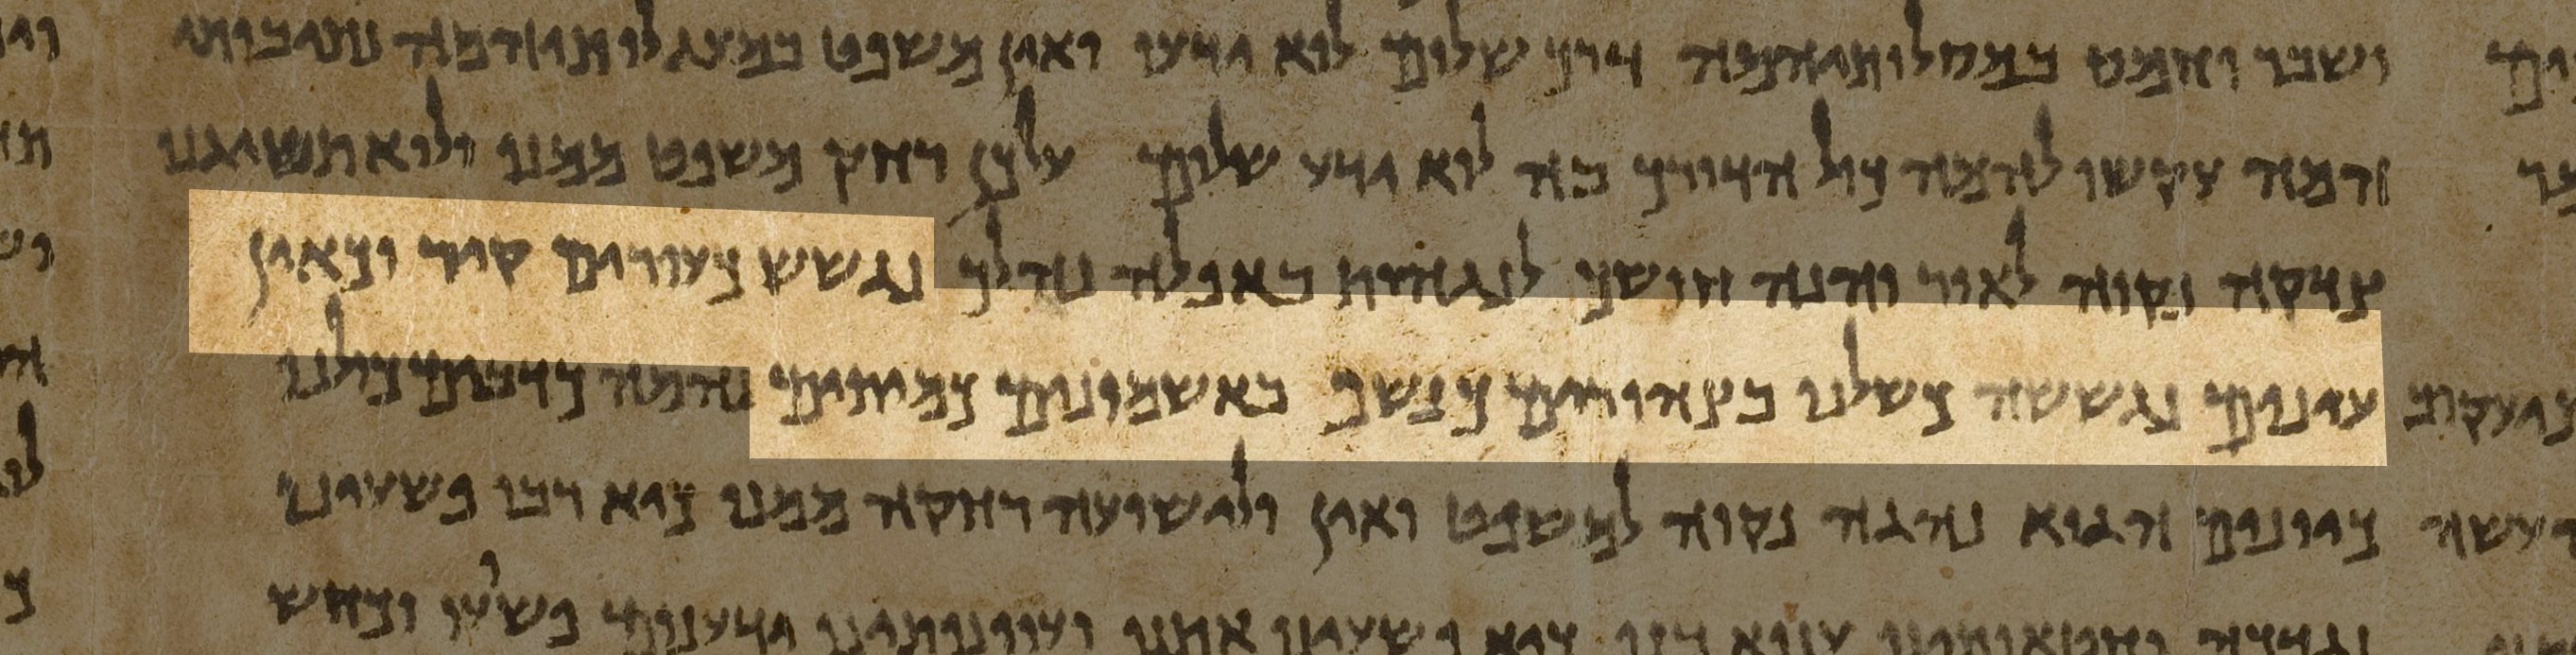 ושבר וחמס במסלותיהמה דרך שלום לוא ידעו ואין משפט במעגלותיהמה נתיבותי
המה עקשו להמה כול הדורך בה לוא ידע שלום על כן רחק משפט ממנו ולוא תשיגנו
צדקה נקוה לאור והנה חושך לנגהות באפלה נהלך נגשש כעורים קיר וכאין
עינים נגששה כשלנו בצהורים כנשף באשמונים כמתים נהמה כדבים כולנו
כיונים הגוא נהגה נקוה למשפט ואין ולישועה רחקה ממנו כיא רבו פשעינו
נגדכה וחטאותינו ענוא בנו כיא פשעינו אתנו ועוונותינו ידענום פשע וכחש